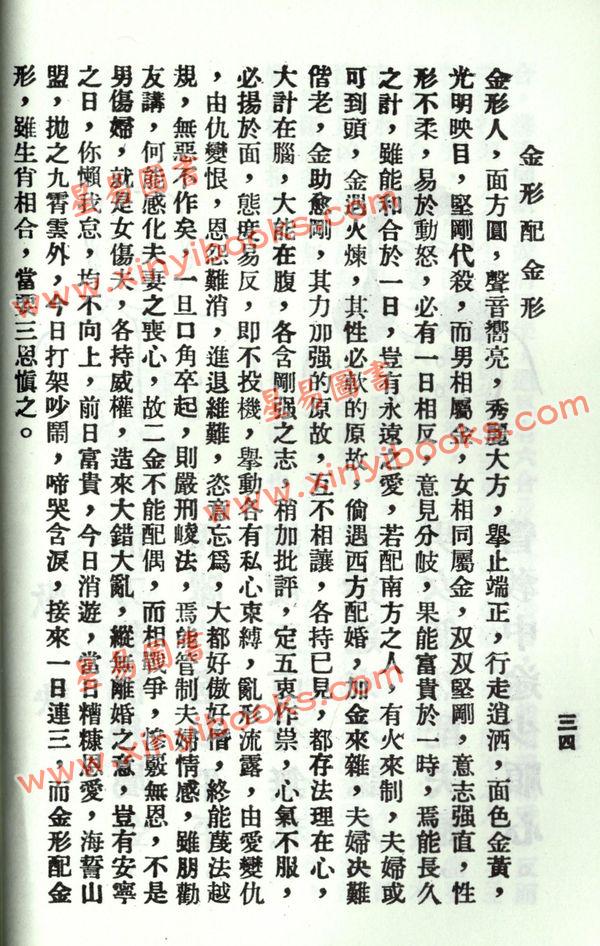 金形配金形
金形人，面方圓，聲音嚮亮，秀麗大方，擧止端正，行走逍洒，面色金黃，
光明映目，堅剛代殺，而男相屬金，女相同屬金，双双堅剛，意志强直，性
形不柔，易於動怒，必有一日相反，意見分岐，果能富貴於一時，焉能長久
之計，雖能和合於一日，豈有永遠之愛，若配南方之人，有火來制，夫婦或
可到頭，金遇火煉，其性必軟的原故，倘遇西方配婚，加金來雜，夫婦决難
偕老，金助愈剛，其力加强的原故，互不相讓，各持已見，都存法理在心，
大計在腦，大能在腹，各含剛强之志，稍加批評，定五衷作祟，心氣不服，
必揚於面，態度易反，即不投機，擧動各有私心束縛，亂形流露，由愛變仇
，由仇變恨，恩怨難消，進退維難，恣意忘爲，大都好傲好惜，終能蔑法越
規，無惡不作矣，一旦口角卒起，則嚴刑峻法，焉能管制夫婦情感，雖朋勸
友講，何能感化夫妻之喪心，故二金不能配偶，而相戰爭，慘覈無恩，不是
男傷婦，就是女傷夫，各持威權，造來大錯大亂，縱無離婚之意，豈有安寧
之日，你懶我怠，均不向上，前日富貴，今日消遊，當日糟糠恩愛，海誓山
盟，拋之九霄雲外，今日打架吵鬧，啼哭含淚，接來一日連三，而金形配金
形，雖生肖相合，當要三思愼之。
三四
星易圖書
www.xinyibooks.com
星易圖書
www.xinyibooks.com
星易圖書
www.xinyibooks.com
星易圖書
www.xinyibooks.com